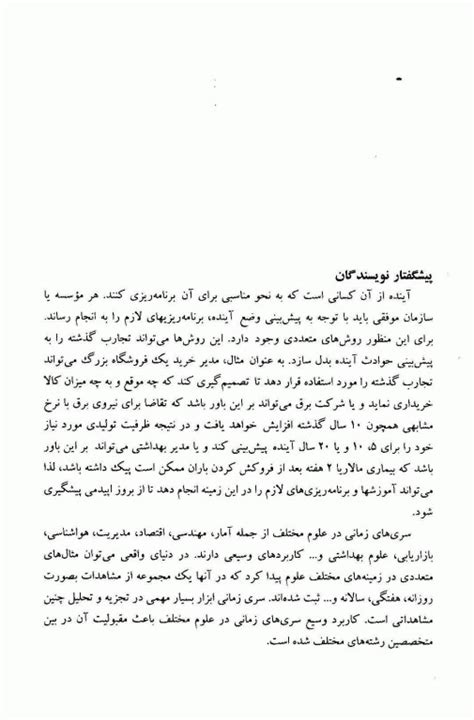 پیشگفتار نویسندگان
آینده از آن کسانی است که به نحو مناسبی برای آن برنامه‌ریزی کنند. هر مؤسسه یا
سازمان موفقی باید با توجه به پیش‌بینی وضع آینده، برنامه‌ریزیهای لازم را به انجام رساند.
برای این منظور روش‌های متعددی وجود دارد. این روش‌ها می‌تواند تجارب گذشته را به
پیش‌بینی حوادث آینده بدل سازد. به عنوان مثال، مدیر خرید یک فروشگاه بزرگ می‌تواند
تجارب گذشته را مورد استفاده قرار دهد تا تصمیم‌گیری کند که چه موقع و به چه میزان کالا
خریداری نماید و یا شرکت برق می‌تواند بر این باور باشد که تقاضا برای نیروی برق با نرخ
مشابهی همچون ۱۰ سال گذشته افزایش خواهد یافت و در نتیجه ظرفیت تولیدی مورد نیاز
خود را برای ۵، ۱۰ و یا ۲۰ سال آینده پیش‌بینی کند و یا مدیر بهداشتی می‌تواند بر این باور
باشد که بیماری مالاریا ۲ هفته بعد از فروکش کردن باران ممکن است پیک داشته باشد، لذا
می‌تواند آموزشها و برنامه‌ریزی‌های لازم را در این زمینه انجام دهد تا از بروز اپیدمی پیشگیری
شود.
سری‌های زمانی در علوم مختلف از جمله آمار، مهندسی، اقتصاد، مدیریت، هواشناسی،
بازاریابی، علوم بهداشتی و... کاربردهای وسیعی دارند. در دنیای واقعی می‌توان مثال‌های
متعددی در زمینه‌های مختلف علوم پیدا کرد که در آنها یک مجموعه از مشاهدات بصورت
روزانه، هفتگی، سالانه و... ثبت شده‌اند. سری زمانی ابزار بسیار مهمی در تجزیه و تحلیل چنین
مشاهداتی است. کاربرد وسیع سری‌های زمانی در علوم مختلف باعث مقبولیت آن در بین
متخصصین رشته‌های مختلف شده است.